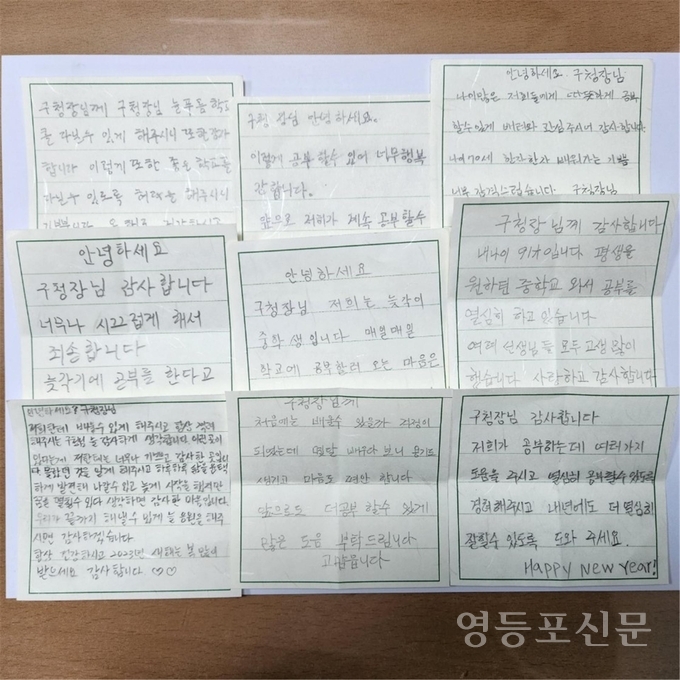 구청장님께 구청장님 늘푸름학교
를 다닐수 있게 해주시니 또한 감사
합니다 이렇게 또한 좋은 학교를
다닐수 있도록 허락을 해주시니
구청장님 안녕하세요.
이렇게 공부 할수 있어 너무행복
합니다.
앞으로 저희가 계속 공부할수
안녕하세요 구청장님
나이많은 저희들에게 따뜻하게 공부
할수있게 배려와 관심 주셔서 감사합니다
나이 70세 한자한자 배워가는 기쁨
너무 감격스럽습니다. 구청장님
안녕하세요
구청장님 감사합니다
너무나 시끄럽게 해서
죄송합니다
늦각기에 공부를 한다고
안녕하세요
구청장님 저희는 늦각이
중학생입니다 매일매일
학교에 공부하러 오는 마음은
구청장님께 감사합니다
내나이 91才입니다 평생을
원하던 중학교 와서 공부를
열심히 하고 있습니다
여러 선생님들 모두 고생 많이
했습니다 사랑하고 감사합니다
안녕하세요? 구청장님
저희한테 배울수 있게 해주시고 항상 격려
해주시는 구청장님 늘 감사하게 생각합니다 이런곳이
있다는게 저한테는 너무나 기쁘고 감사한 곳입니
다 못배웠던 것을 알게 해주시고 하루하루 삶을 행복
하게 발견해 나갈수 있고 늦게 시작을 했지만
좋은 열매수 있다 생각하면 감사한 마음입니다.
우리가 끝까지 해낼수 있게 늘 응원을 해주
시면 감사하겠습니다
항상 건강하시고 2023년 새해는 복많이
받으세요 감사합니다 ♡♡
구청장님께
처음에는 배울수 있을까 걱정이
되었는데 몇달 배우다 보니 용기도
생기고 마음도 편안 합니다
앞으로도 더공부 할수 있게
많은 도움 부탁드립니다
고맙습니다
구청장님 감사합니다
저희가 공부하는데 여러가지
도움을 주시고 열심히 공부할수 있도록
격려해주시고 내년에도 더 열심히
잘할수 있도록 도와 주세요.
Happy New Year!
영등포신문